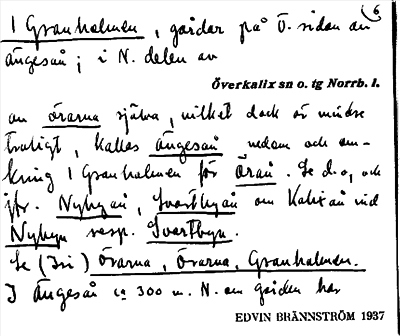 6
1 Granholmen, gårdar på Ö. sidan av
Ängesån; i N. delen av
Överkalix sn o. tg Norrb. l.
om örarna själva, vilket dock är mindre
troligt, kallas Ängesån nedom och om-
kring 1 Granholmen för Öran. Se d.o, och
jfr. Nybyån, Svartbyån om Kalixän vid
Nybyn resp. Svartbyn.
Se (Tri) Örarna, Örarna, Granholmen.
I Ängesån ca 300 m. N. om gården har
EDVIN BRÄNNSTRÖM 1937